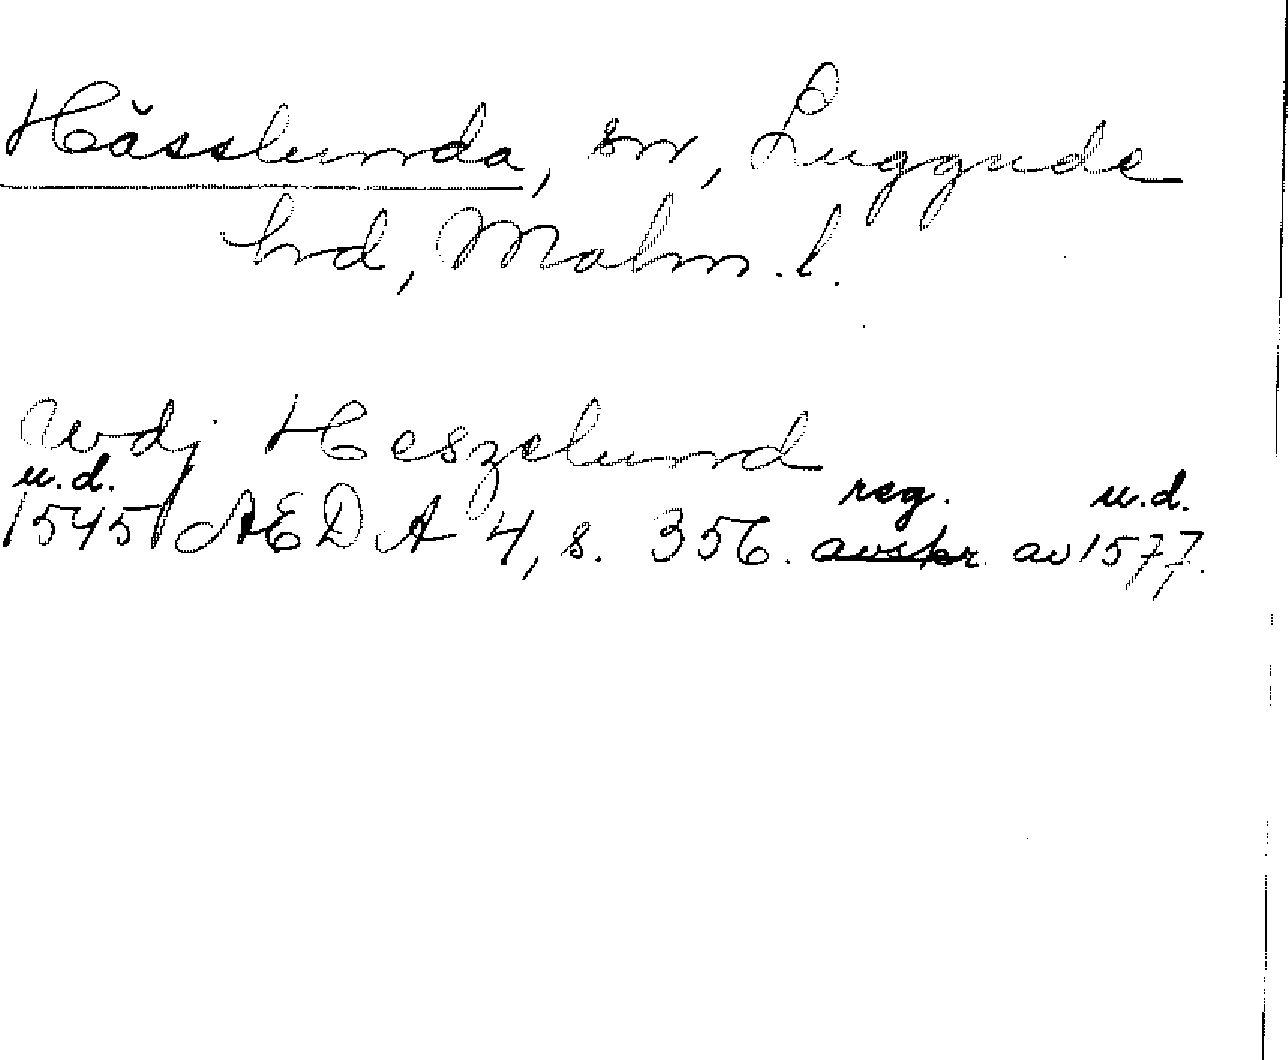 Hässlunda, sn, Luggude
hrd, Malm. l.
Wdj Heszelund
u.d. reg. u.d.
1545 AEDA 4, s. 356. avskr. av 1577.